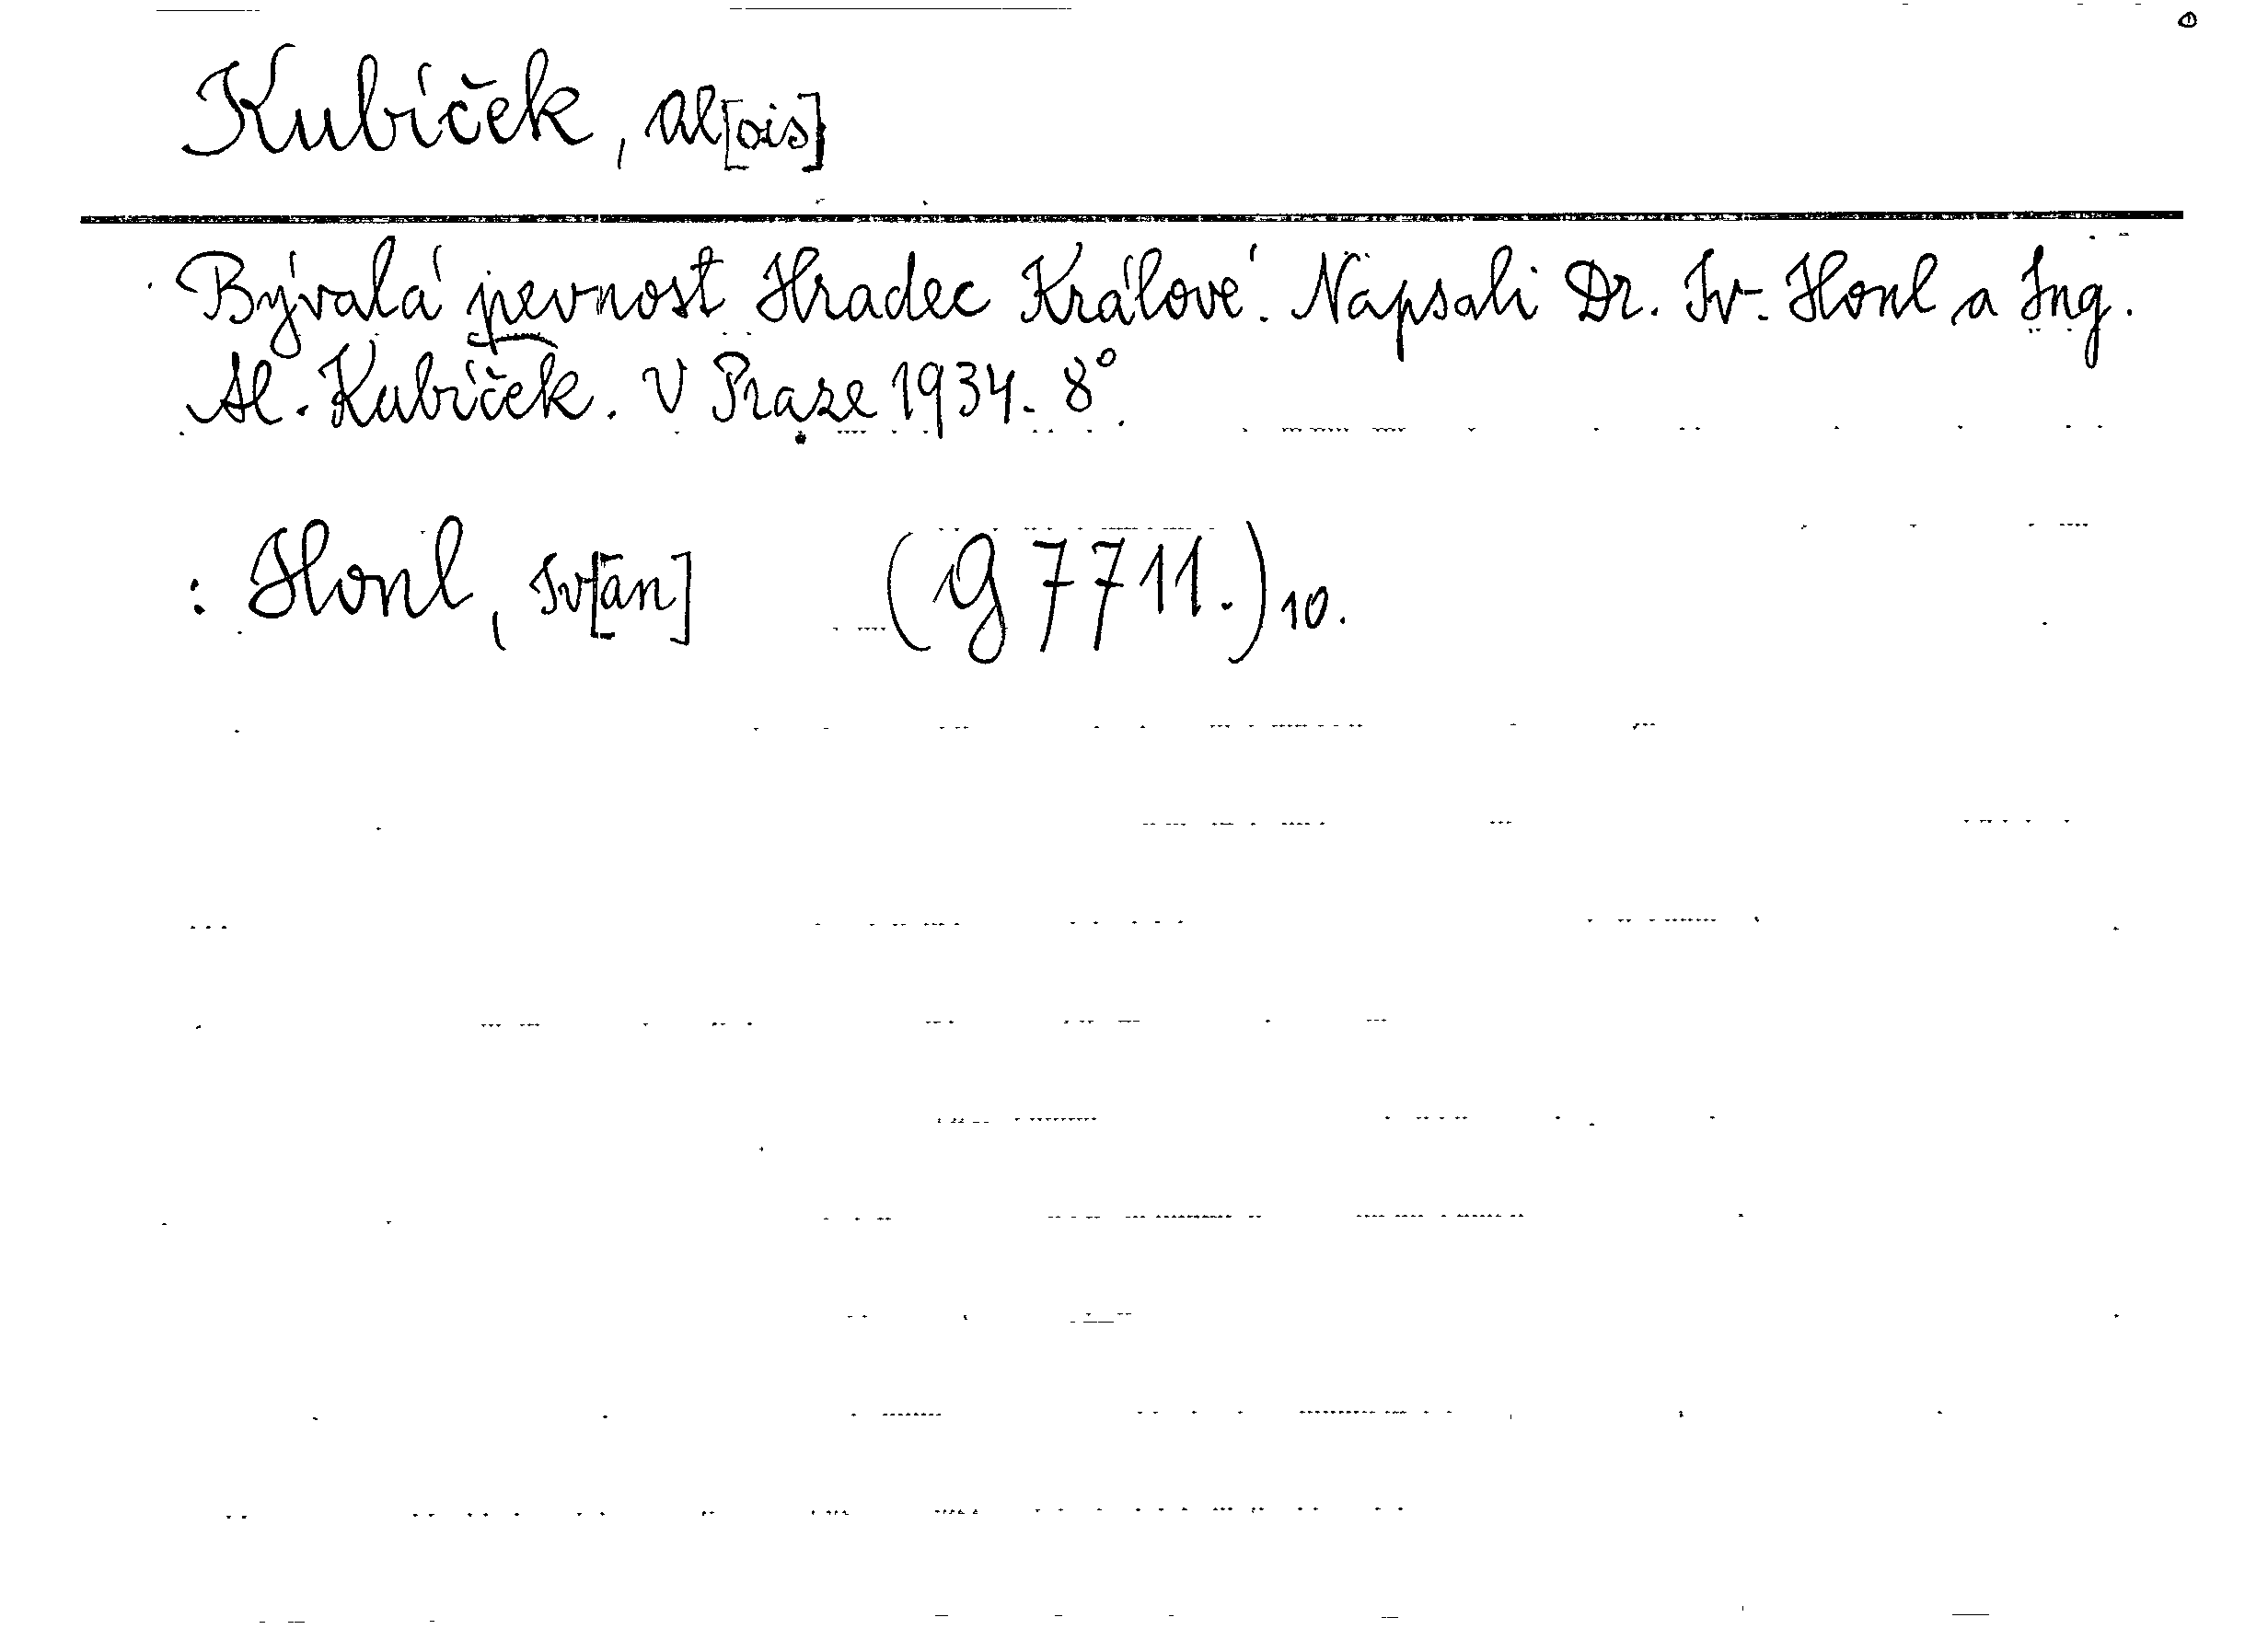 Kubíček, Al[ois]
Bývalá pevnost Hradec Králové. Napsali Dr. Iv. Honl a Ing.
Al. Kubíček. V Praze 1934. 8°.
: Honl, Iv[an] (G 7711.) 10.